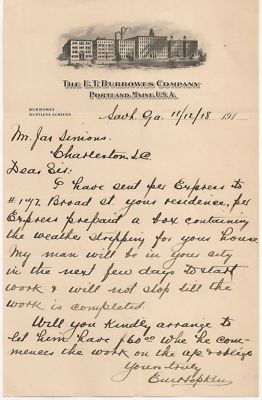 THE E.T. BURROWES COMPANY
PORTLAND, MAINE, U.S.A.
BURROWES
RUSTLESS SCREENS
Savh. Ga. 11/12/18 191
Mr. Jas Simons.
Charleston S.C
Dear Sir.
I have sent per Express to
# 172 Broad St. your residence, per
Express prepaid a box containing
the weather stripping for your house
My man will be in your city
in the next few days to start
work & will not stop till the
work is completed.
Will you kindly arrange to
let him have $60.00 whe he com-
mences the work on the a/c & oblige
Yours truly